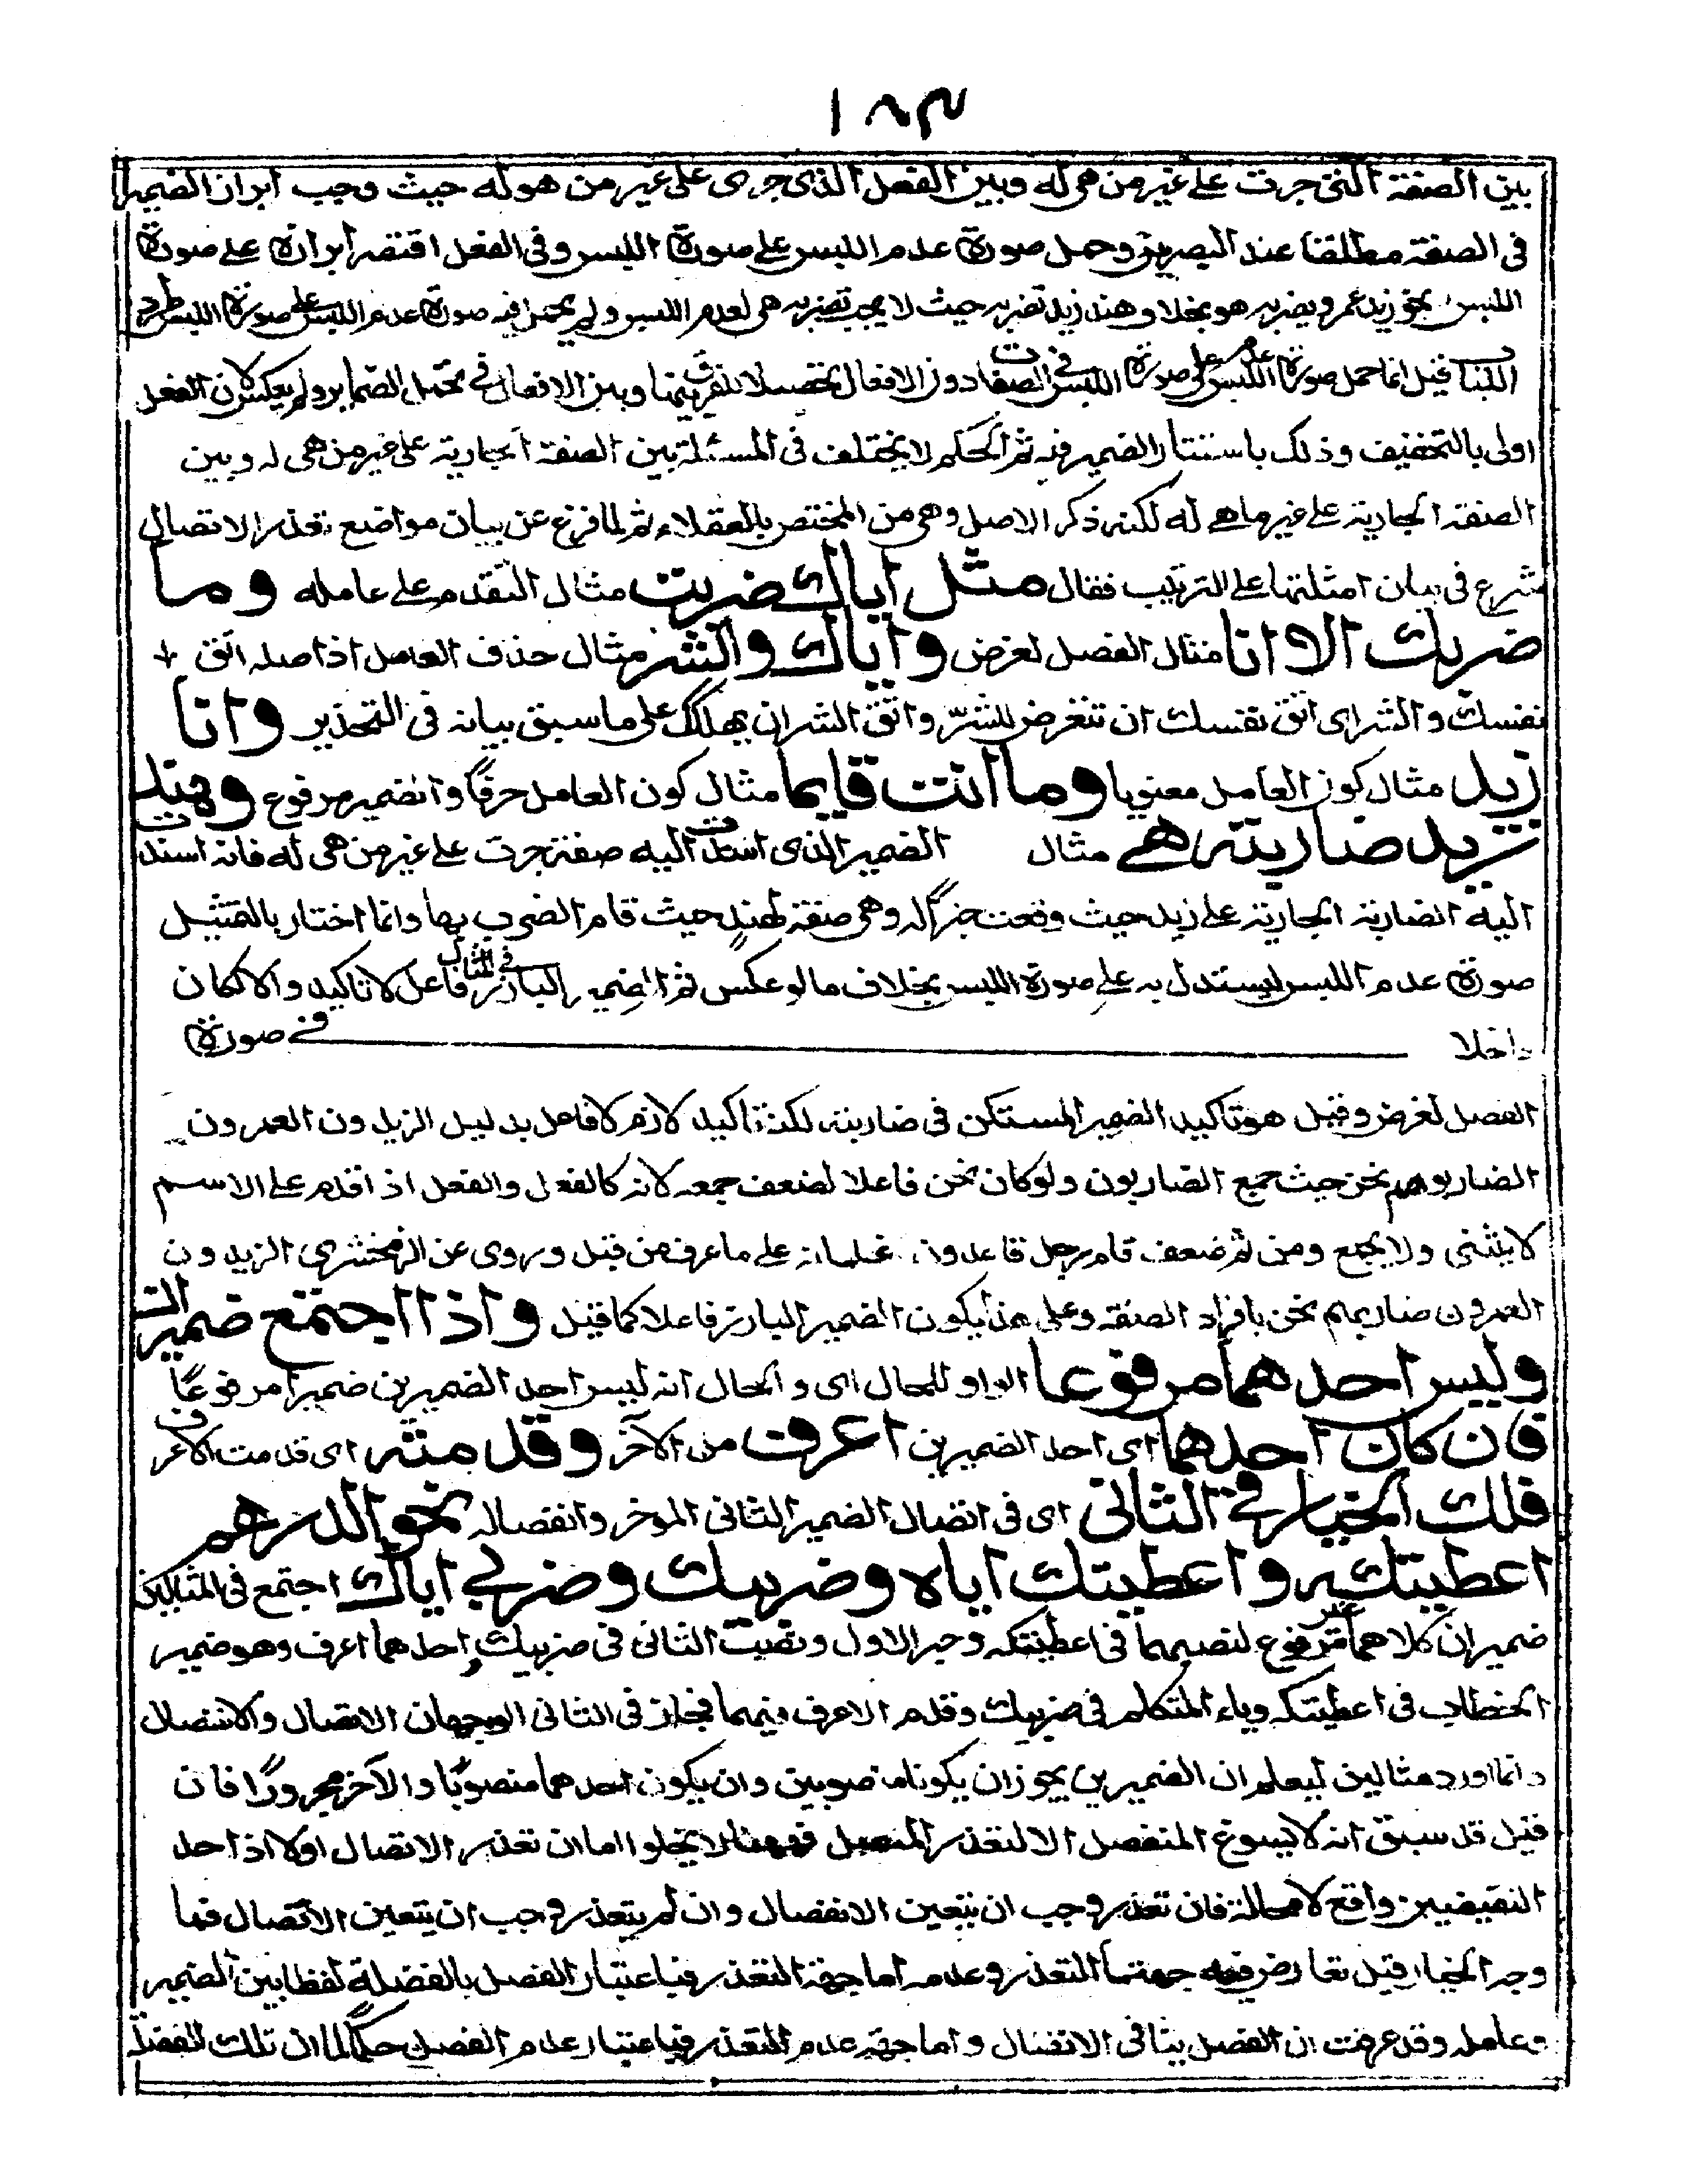 ١٨٣
بين الصفة التى جرت على غير من هى له وبين الفعل الذى جرى على غير من هو له حيث وجب ابراز الضمير
فى الصفة مطلقا عند البصريين وحمل صورة عدم اللبس على صورة اللبس وفى الفعل اقتصر ابرازه على صورة
اللبس نحو زيد عمرو يضربه هو بخلاف هند زيد تضربه حيث لا يجب تضربه هى لعدم اللبس ولم يحمل فيه صورة عدم اللبس على صورة اللبس طردا
للباب قيل انما حمل صورة عدم اللبس على صورة اللبس فى الصفات دون الافعال بينها وبين الافعال فى تحمل الضماير ولم يعكس لان الفعل
اولى بالتخفيف وذلك باستتار الضمير فيه ثم الحكم لا يختلف فى المسئلة بين الصفة الجارية على غير من هى له وبين
الصفة الجارية على غير ما هى له لكنه ذكر الاصل وهى من المختص بالعقلاء ثم لما فرغ عن بيان مواضع تعذر الاتصال
شرع فى بيان امثلتها على الترتيب فقال مثل اياك ضربت مثال التقدم على عامله وما
ضربك الا انا مثال الفصل لغرض واياك والشر مثال حذف العامل اذ اصله اتق
نفسك والشر اى اتق نفسك ان تتعرض للشرّ واتق الشر ان يهلكك على ما سبق بيانه فى التحذير وانا
زيد مثال كون العامل معنويا وما انت قايما مثال كون العامل حرفًا والضمير مرفوع وهند
زيد ضاربته هى مثال الضمير الذى اسندت اليه صفة جرت على غير من هى له فانه اسندت
اليه الضاربة الجارية على زيد حيث وقعت خبرًا له وهى صفة لهند حيث قام الضرب بها وانما اختار بالتمثيل
صورة عدم اللبس ليستدل به على صورة اللبس بخلاف ما لو عكس ثم الضمير البارز فى المثال فاعل لا تاكيد والا لكان
داخلا فى صورة
الفصل لغرض وقيل هو تاكيد الضمير المستكن فى ضاربته لكنه تاكيد لازم لا فاعل بدليل الزيدون العمرون
الضاربوهم نحن حيث جمع الضاربون ولو كان نحن فاعلا لضعف جمعه لانه كالفعل والفعل اذا قدم على الاسم
لا يثنى ولا يجمع ومن ثم ضعف قام رجل قاعدون غلمانه على ما عرف من قبل وروى عن الزمخشرى الزيدون
العمرون ضاربهم نحن بافراد الصفة وعلى هذا يكون الضمير البارز فاعلا كما قيل واذا اجتمع ضميران
وليس احدهما مرفوعا الواو للحال اى والحال انه ليس احد الضميرين ضميرا مرفوعًا
فان كان احدهما اى احد الضميرين اعرف من الآخر وقدمته اى قدمت الاعرف
فلك الخيار فى الثانى اى فى اتصال الضمير الثانى المؤخر وانفصاله نحو الدرهم
اعطيتكه واعطيتك اياه وضربيك وضربى اياك اجتمع فى المثالين
ضميران كلاهما غير مرفوع لنصبهما فى اعطيتكه وجر الاول ونصب الثانى فى ضربيك واحدهما اعرف وهو ضمير
الخطاب فى اعطيتكه وياء المتكلم فى ضربيك وقدم الاعرف فيهما فجاز فى الثانى الوجهان الاتصال والانفصال
وانما اورد مثالين ليعلم ان الضميرين يجوز ان يكونا منصوبين وان يكون احدهما منصوبًا والآخر مجرورًا فان
قيل قد سبق انه لا يسوغ المنفصل الا لتعذر المتصل فههنا لا يخلوا اما ان تعذر الاتصال اولا اذ احد
النقيضين واقع لا محالة فان تعذر وجب ان يتعين الانفصال وان لم يتعذر وجب ان يتعين الاتصال فما
وجه الخيار قيل تعارض فيه جهتا التعذر وعدمه اما جهة التعذر فباعتبار الفصل بالفضلة لفظا بين الضمير
وعامله وقد عرفت ان الفصل ينافى الاتصال واما جهة عدم التعذر فباعتبار عدم الفصل حكمًا لما ان تلك الفضلة